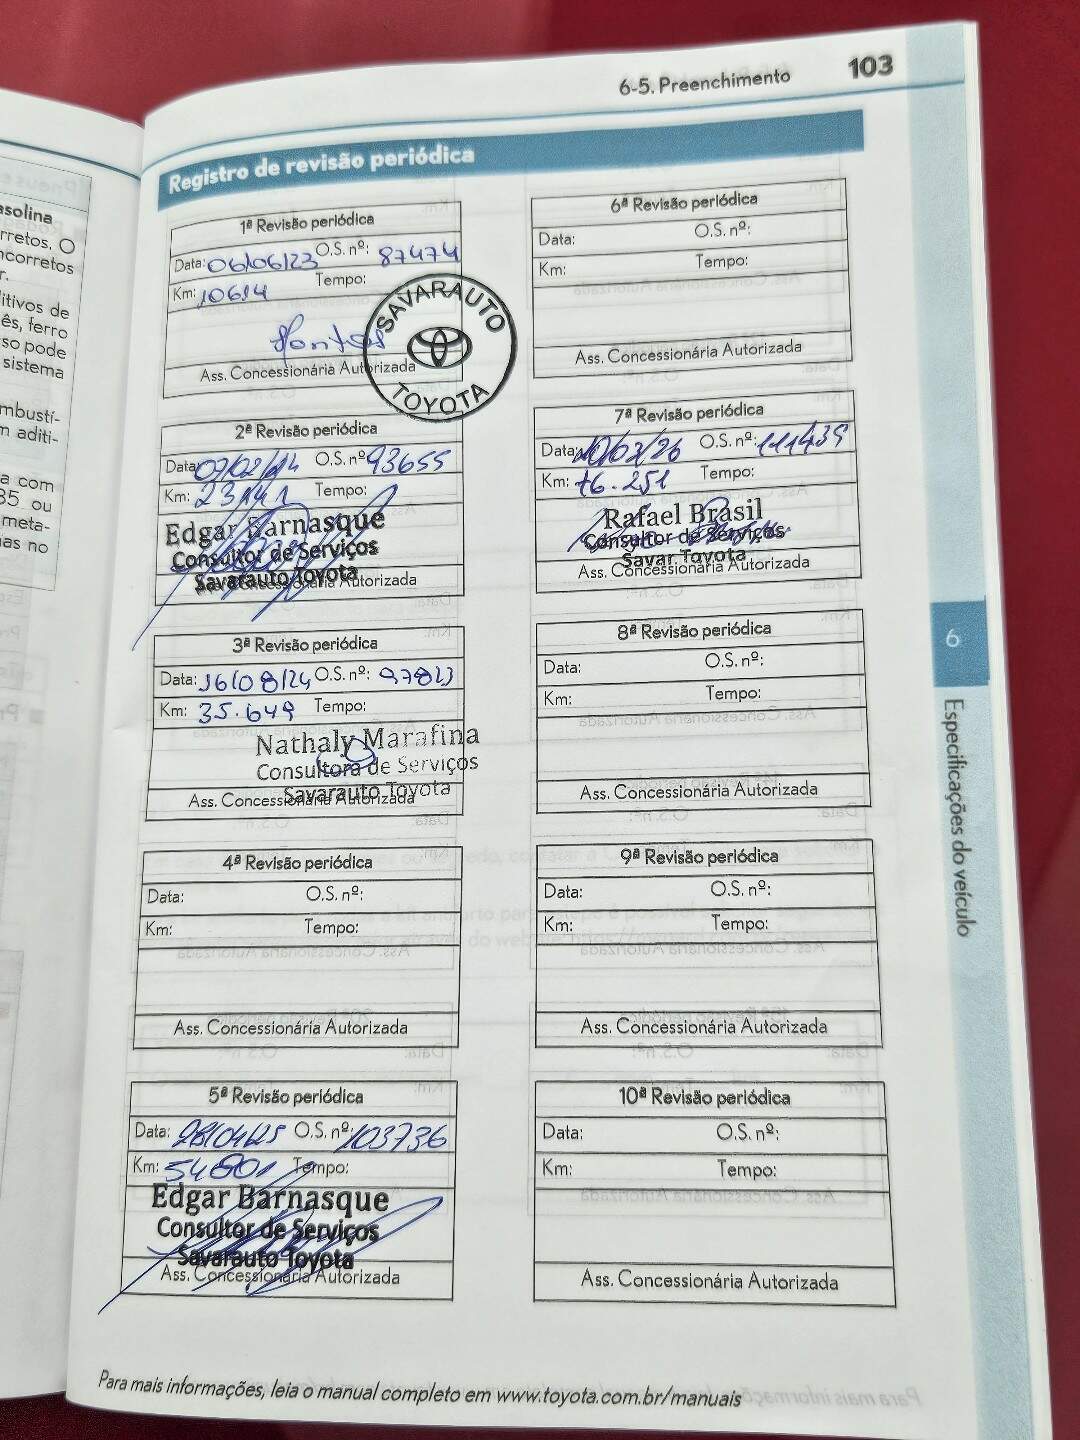 asolina
rretos. O
ncorretos
r.
itivos de
ês, ferro
so pode
sistema
mbustí-
m aditi-
a com
85 ou
meta-
as no
6-5. Preenchimento 103
Registro de revisão periódica
1ª Revisão periódica
Data: 06/06/23 O.S. nº: 87474
Km: 10614 Tempo:
SAVARAUTO
TOYOTA
Ass. Concessionária Autorizada
2ª Revisão periódica
Data: 07/02/24 O.S. nº: 93655
Km: 23141 Tempo:
Edgar Barnasque
Consultor de Serviços
Savarauto Toyota
Ass. Concessionária Autorizada
3ª Revisão periódica
Data: 16/08/24 O.S. nº: 97823
Km: 35.649 Tempo:
Nathaly Marafina
Consultora de Serviços
Savarauto Toyota
Ass. Concessionária Autorizada
4ª Revisão periódica
Data: O.S. nº:
Km: Tempo:
Ass. Concessionária Autorizada
5ª Revisão periódica
Data: 28/04/25 O.S. nº: 103736
Km: 54801 Tempo:
Edgar Barnasque
Consultor de Serviços
Savarauto Toyota
Ass. Concessionária Autorizada
6ª Revisão periódica
Data: O.S. nº:
Km: Tempo:
Ass. Concessionária Autorizada
7ª Revisão periódica
Data: O.S. nº: 111439
Km: 76.251 Tempo:
Rafael Brasil
Consultor de Serviços
Savar Toyota
Ass. Concessionária Autorizada
8ª Revisão periódica
Data: O.S. nº:
Km: Tempo:
Ass. Concessionária Autorizada
9ª Revisão periódica
Data: O.S. nº:
Km: Tempo:
Ass. Concessionária Autorizada
10ª Revisão periódica
Data: O.S. nº:
Km: Tempo:
Ass. Concessionária Autorizada
6
Especificações do veículo
Para mais informações, leia o manual completo em www.toyota.com.br/manuais